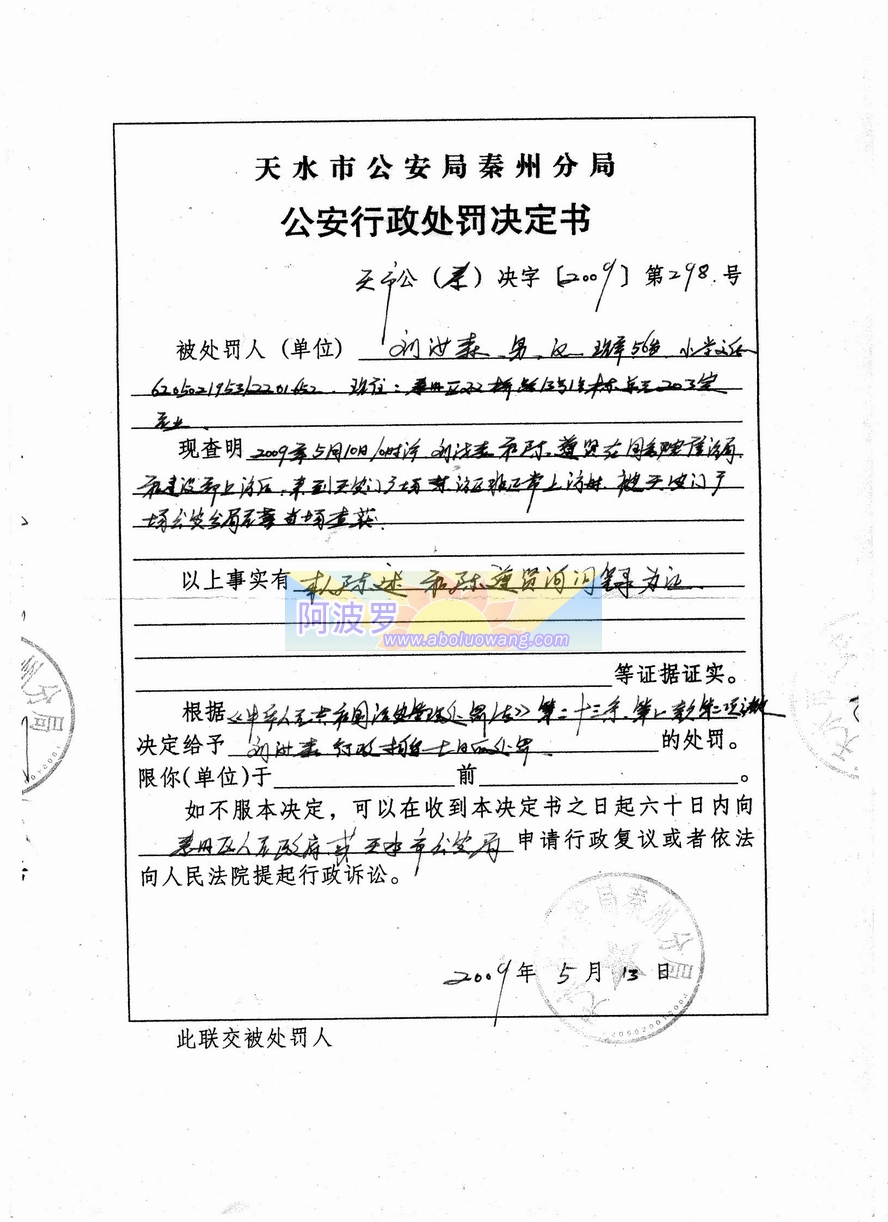 天水市公安局秦州分局
公安行政处罚决定书
天市公（秦）决字［2009］第298.号
被处罚人（单位） 刘汝森 男 汉 现年56岁 小学文化
620502195312201652 现住： 桥 13号 203室
现查明 2009年5月10日10时许 刘汝森和陈
和建设部上访后，来到天安门广场 正常上访时，被天安门广
场公安分局民警当场查获.
以上事实有 本人陈述 和陈 询问笔录为证
阿波罗
www.aboluowang.com
等证据证实。
根据《中华人民共和国治安管理处罚法》第二十三条、第一款第二项之规
决定给予 刘汝森行政拘留七日的处罚. 的处罚。
限你（单位）于 前 。
如不服本决定，可以在收到本决定书之日起六十日内向
秦州区人民政府或天水市公安局 申请行政复议或者依法
向人民法院提起行政诉讼。
2009年5月13日
此联交被处罚人